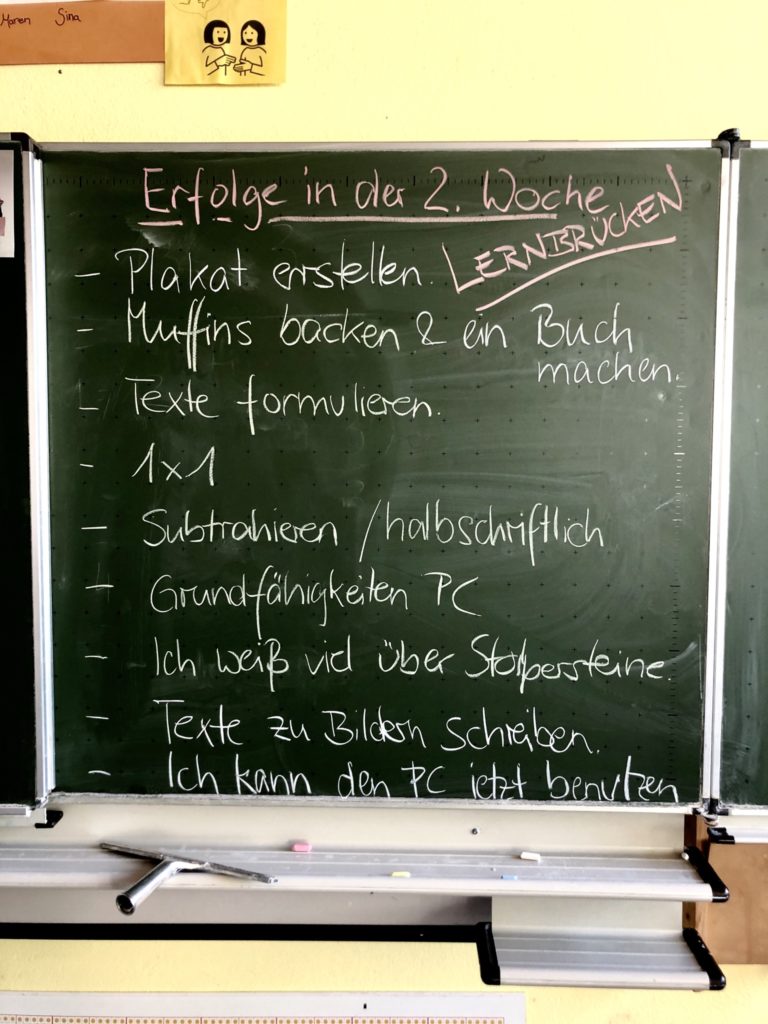 Maren Sina
Erfolge in der 2. Woche
LERNBRÜCKEN
– Plakat erstellen.
– Muffins backen & ein Buch
machen.
– Texte formulieren.
– 1x1
– Subtrahieren / halbschriftlich
– Grundfähigkeiten PC
– Ich weiß viel über Stolpersteine.
– Texte zu Bildern schreiben.
– Ich kann den PC jetzt benutzen